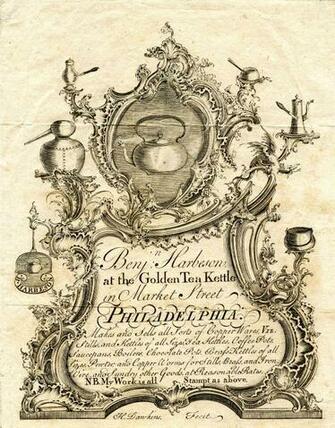 HARBESON
Benjn. Harbeson,
at the Golden Tea Kettle
in Market Street
PHILADELPHIA;
Makes and Sells all Sorts of Copper Wares, VIZ.
Stills, and Kettles of all Sizes, Tea Kettles, Coffee Pots,
Saucepans, Boilers, Chocolate Pots, Brass Kettles of all
Sizes, Pewter and Copper Worms for Stills, Brass, and Iron,
Wire, and Sundry other Goods, at Reasonable Rates.
N.B. My Work is all Stampt as above.
H. Dawkins, Fecit